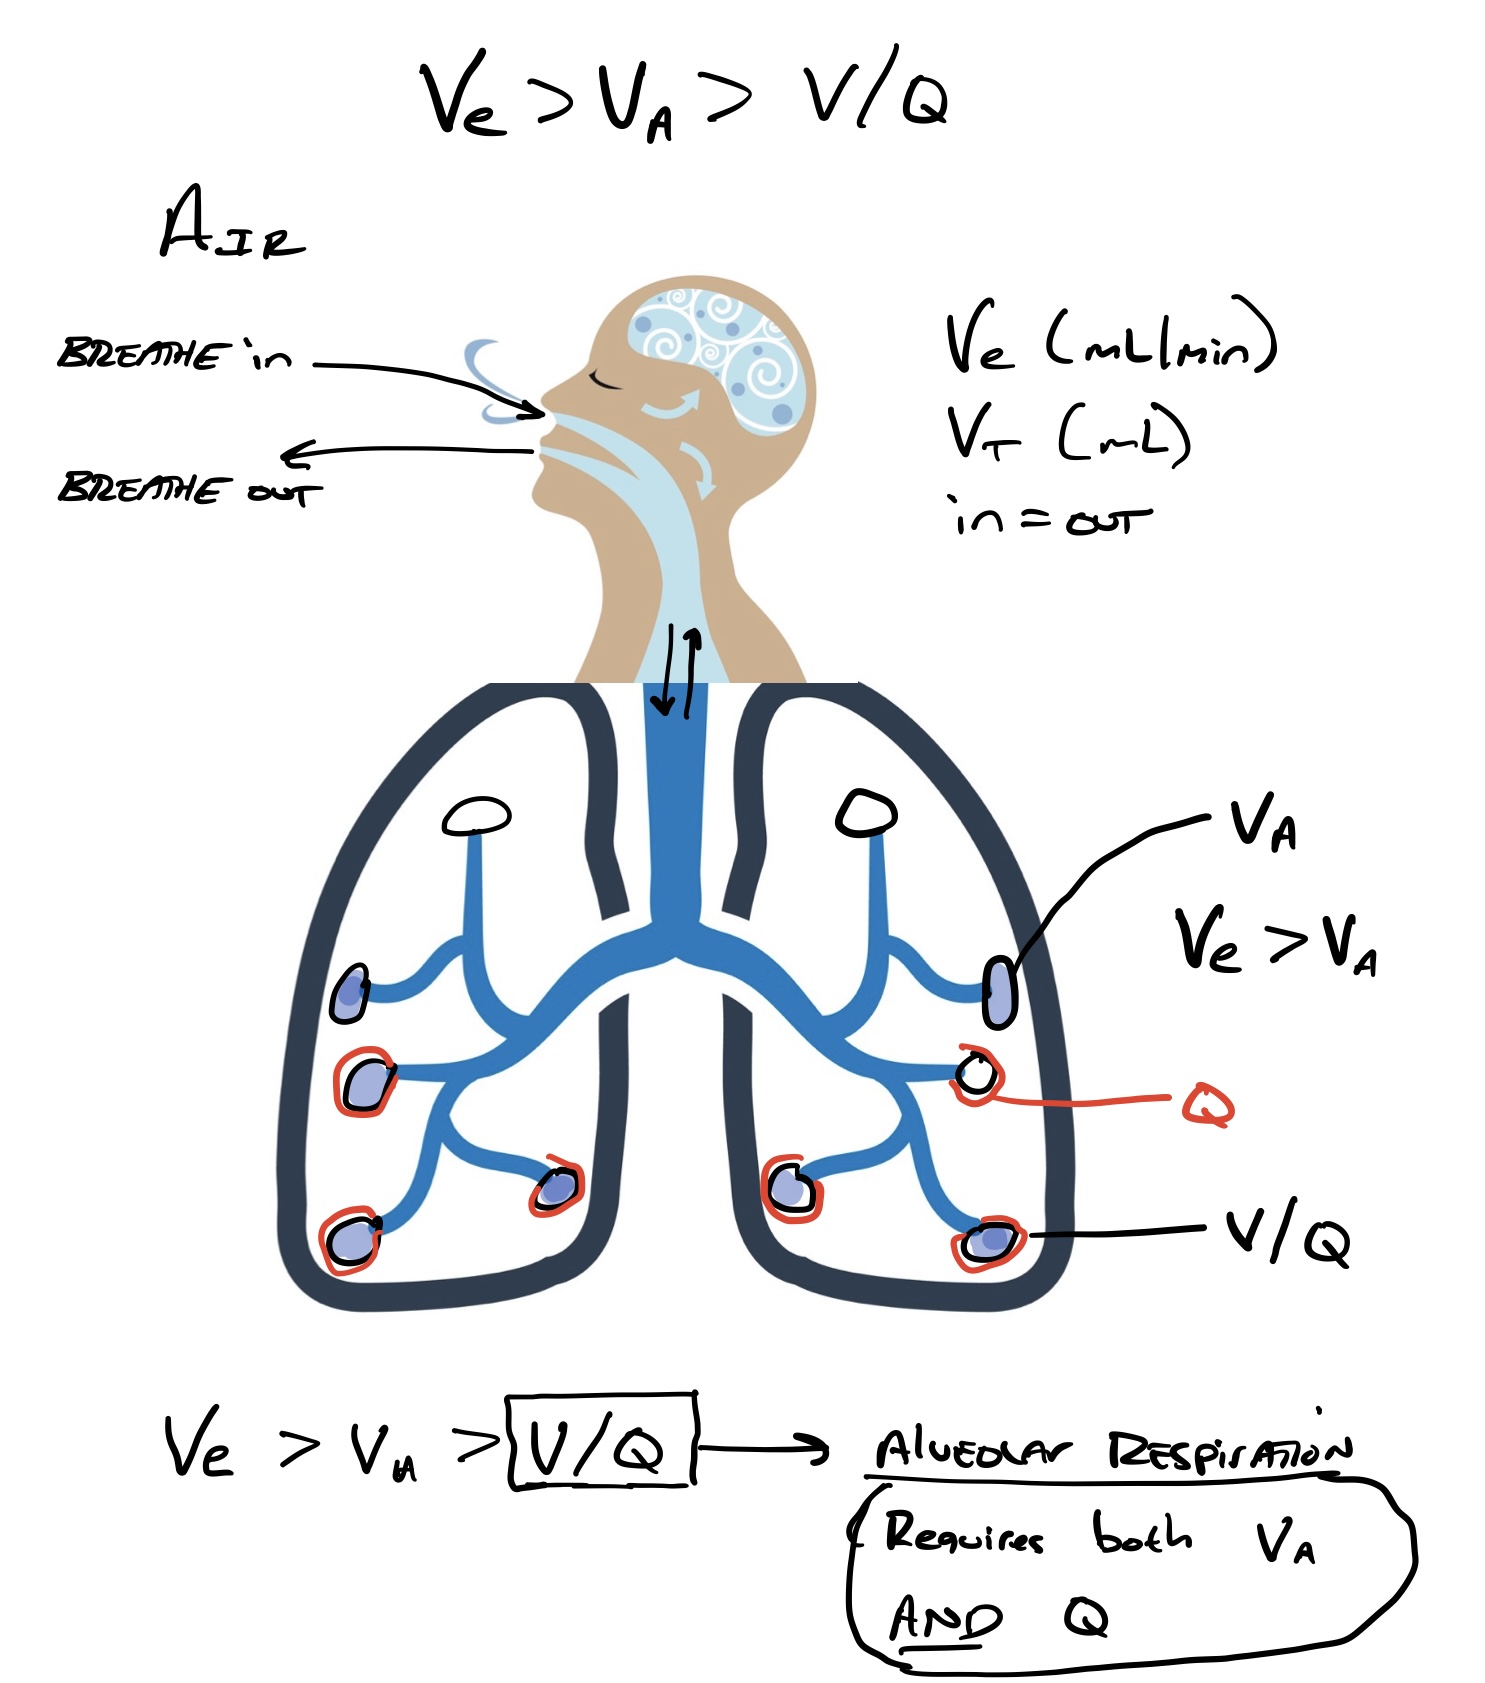 Ve > VA > V/Q
AIR
BREATHE in
BREATHE OUT
Ve (mL/min)
VT (mL)
in = OUT
VA
Ve > VA
Q
V/Q
Ve > VA > V/Q → ALVEOLAR RESPIRATION
Requires both VA
AND Q